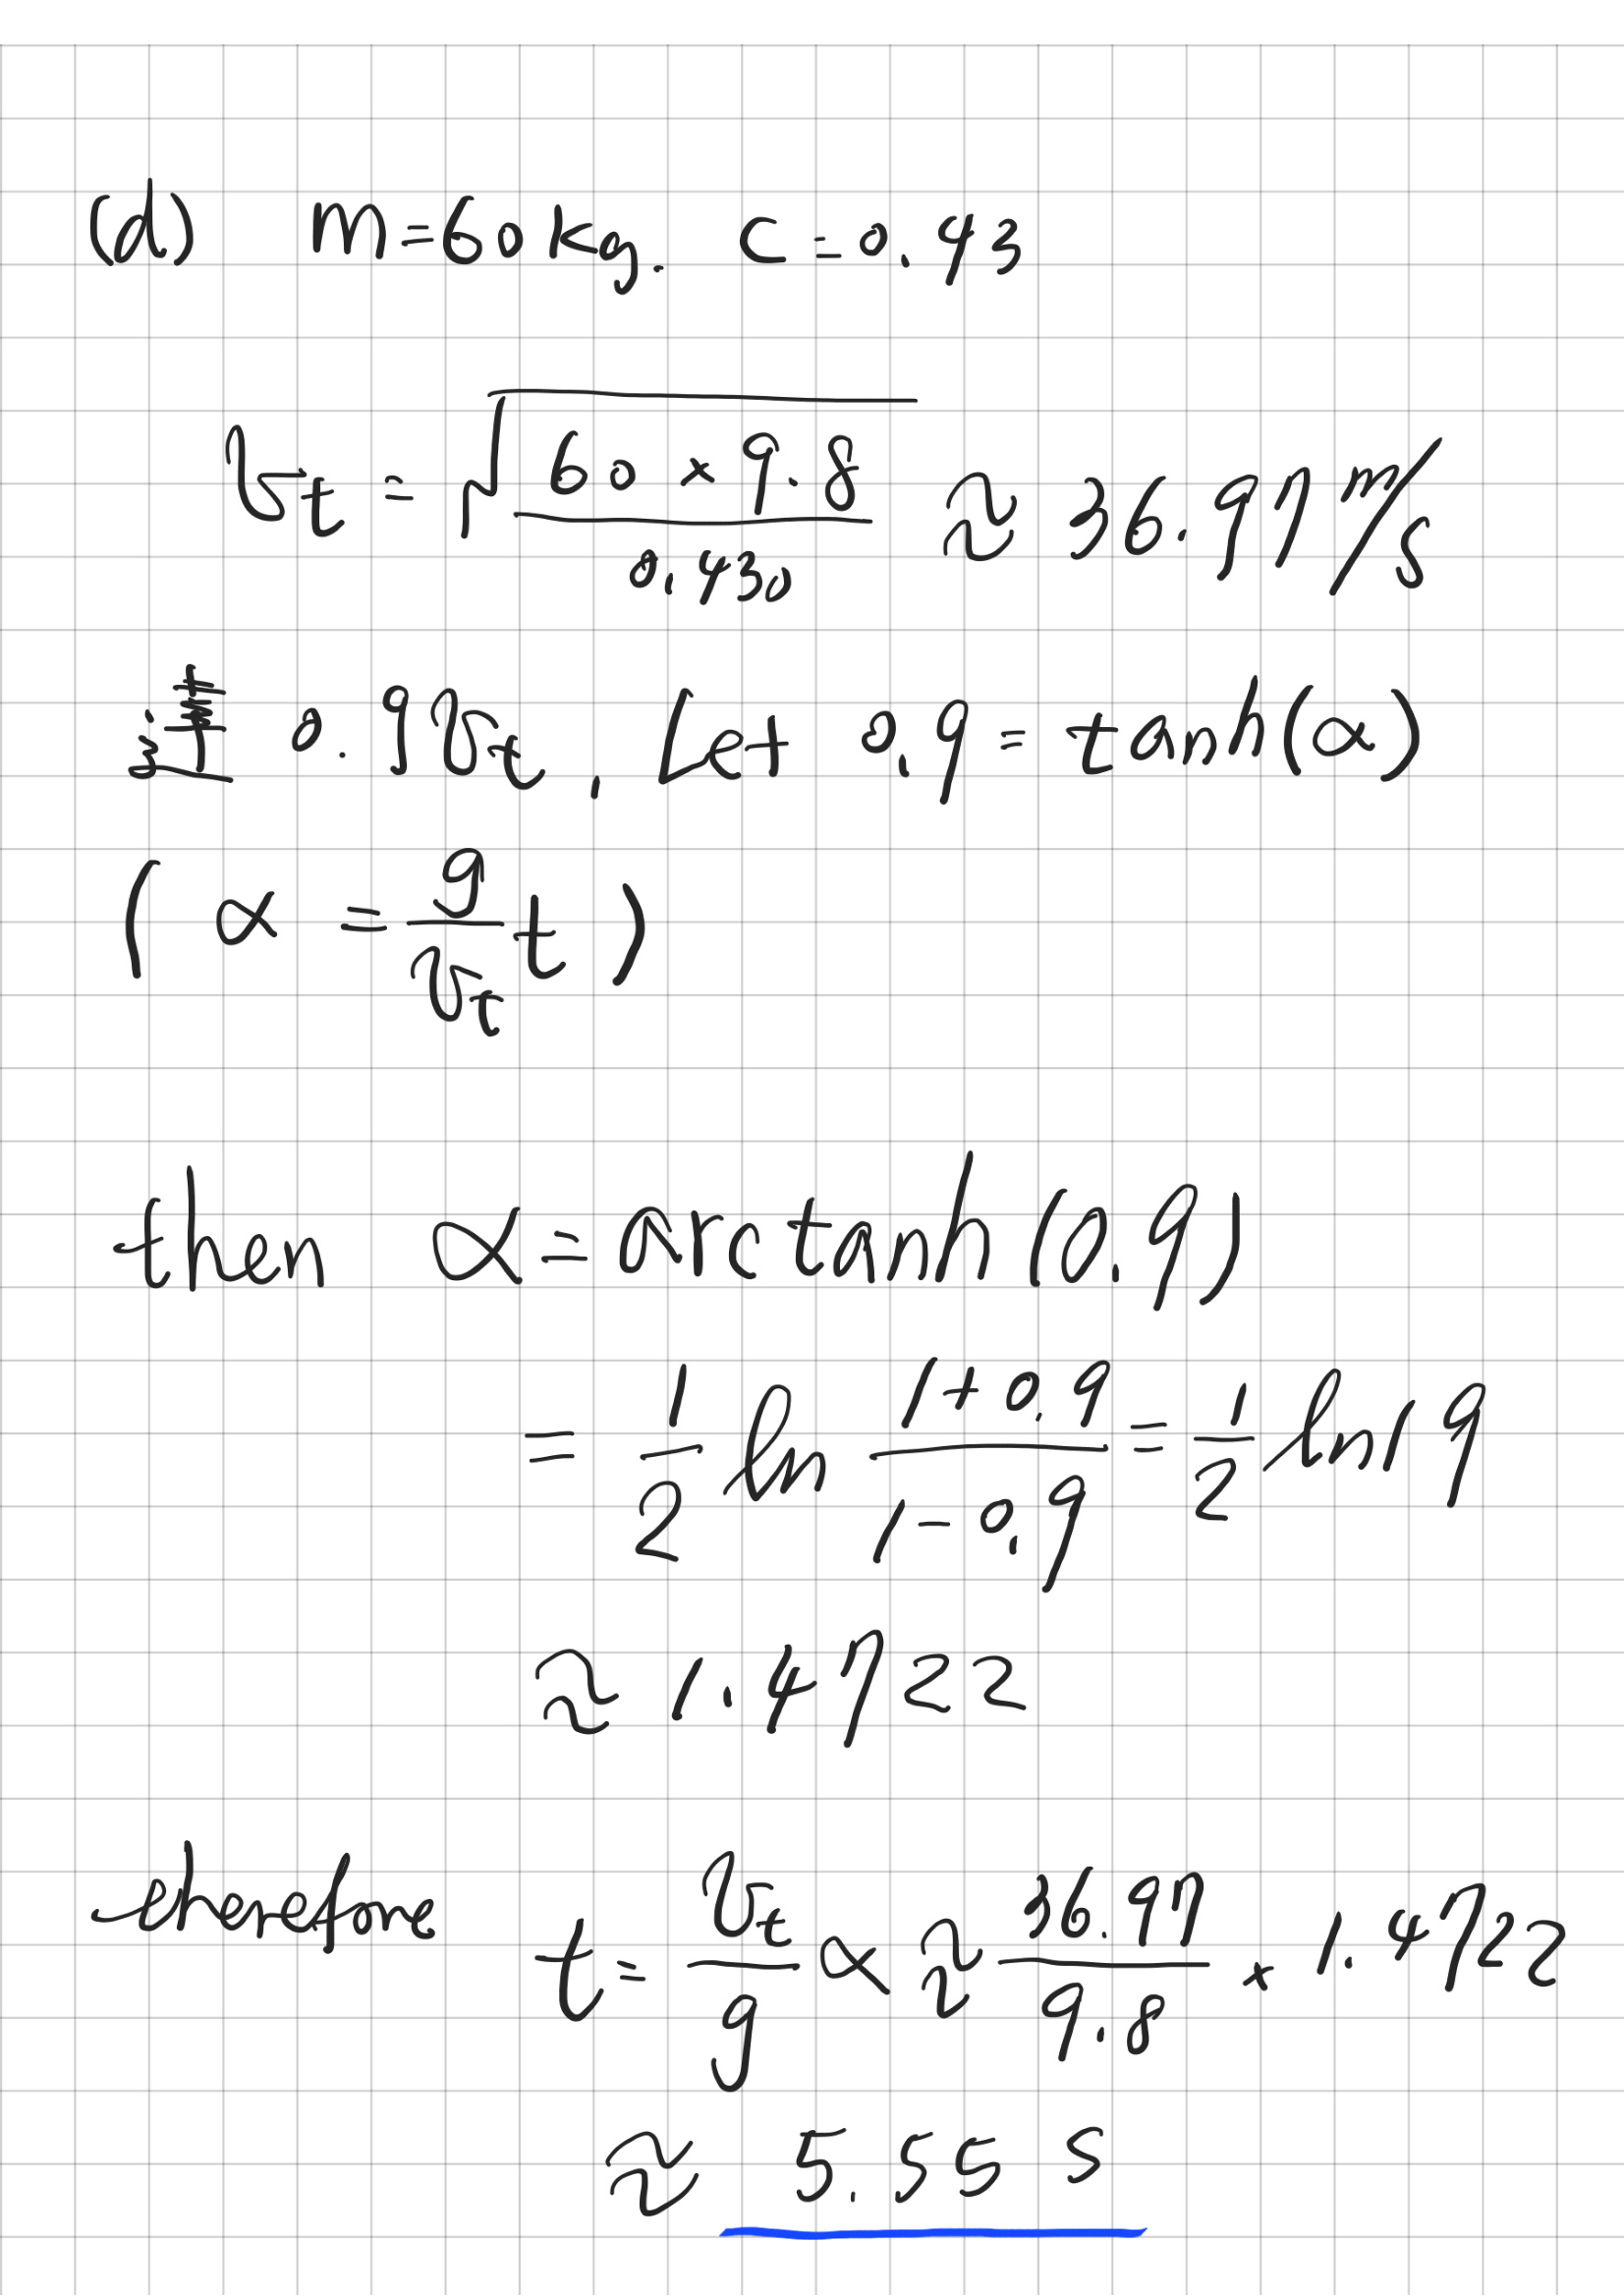 (d) m=60kg. C=0.43
v_t = √(60×9.8 / 0.430) ≈ 36.97 m/s
达 0.9v_t, Let 0.9 = tanh(α)
( α = g/v_t t )
then α = arctanh(0.9)
= 1/2 ln (1+0.9)/(1-0.9) = 1/2 ln19
≈ 1.4722
therefore t = v_t/g α ≈ 36.97/9.8 × 1.4722
≈ 5.55 s